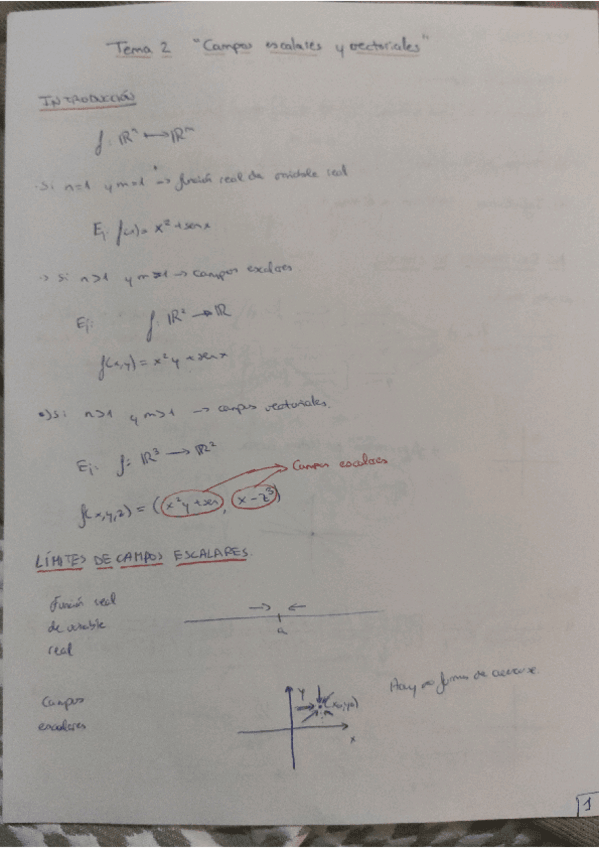 Tema 2 "Campos escalares y vectoriales"
INTRODUCCIÓN
f: ℝⁿ ⟼ ℝᵐ
· Si n=1 y m=1 → función real de variable real
Ej: f(x) = x² + sen x
→ Si n>1 y m=1 → campos escalares
Ej: f: ℝ² → ℝ
f(x,y) = x²y + sen x
•) Si n>1 y m>1 → campos vectoriales.
Ej: f: ℝ³ → ℝ²
→ Campos escalares
f(x,y,z) = (x²y + sen, x - z³)
LÍMITES DE CAMPOS ESCALARES.
función real
de variable
real
→ ←
a
Campos
escalares
y
(x₀,y₀)
x
Hay ∞ formas de acercarse.
1